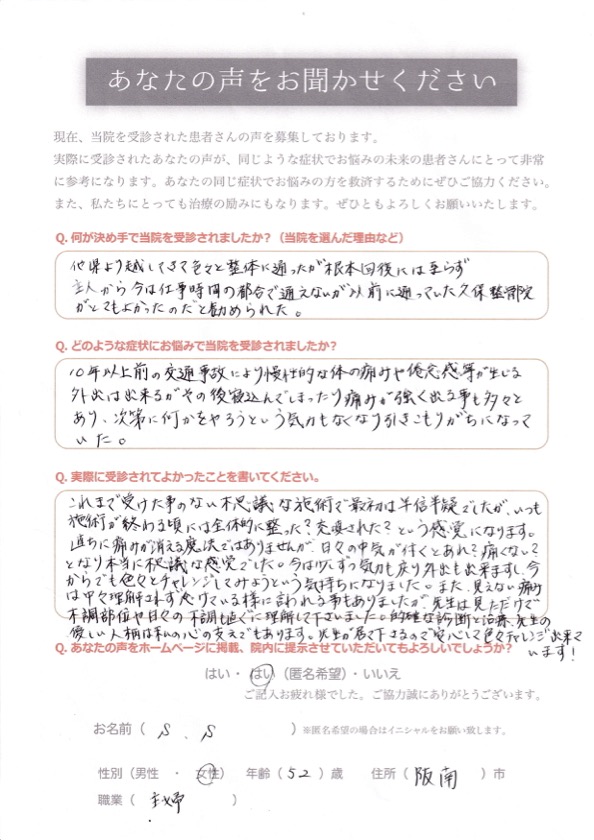 あなたの声をお聞かせください
現在、当院を受診された患者さんの声を募集しております。
実際に受診されたあなたの声が、同じような症状でお悩みの未来の患者さんにとって非常
に参考になります。あなたの同じ症状でお悩みの方を救済するためにぜひご協力ください。
また、私たちにとっても治療の励みにもなります。ぜひともよろしくお願いいたします。
Q. 何が決め手で当院を受診されましたか？（当院を選んだ理由など）
他県より越してきて色々と整体に通ったが根本回復には至らず
主人から今は仕事時間の都合で通えないが以前に通っていた久保整骨院
がとてもよかったのだと勧められた。
Q. どのような症状にお悩みで当院を受診されましたか？
10年以上前の交通事故により慢性的な体の痛みや倦怠感等が生じる
外出は出来るがその後寝込んでしまったり痛みが強く出る事も多々と
あり、次第に何かをやろうという気力もなくなり引きこもりがちになって
いた。
Q. 実際に受診されてよかったことを書いてください。
これまで受けた事のない不思議な施術で最初は半信半疑でしたが、いつも
施術が終わる頃には全体的に整った？交換された？という感覚になります。
直ちに痛みが消える魔法ではありませんが、日々の中気が付くとあれ？痛くない？
となり本当に不思議な感覚でした。今は少しずつ気力も戻り外出も出来ますし、今
からでも色々とチャレンジしてみようという気持ちになりました。また、見えない痛み
は中々理解されず怠けている様に言われる事もありましたが、先生は見ただけで
不調部位や日々の不調も直ぐに理解して下さいました。的確な診断と治療、先生の
優しい人柄は私の心の支えでもあります。先生が居て下さるので安心して色々チャレンジ出来て
います！
Q. あなたの声をホームページに掲載、院内に提示させていただいてもよろしいでしょうか？
はい・はい（匿名希望）・いいえ
ご記入お疲れ様でした。ご協力誠にありがとうございます。
お名前（ S . S ）※匿名希望の場合はイニシャルをお願い致します。
性別（男性 ・ 女性） 年齢（52）歳 住所（ 阪南 ）市
職業（ 主婦 ）